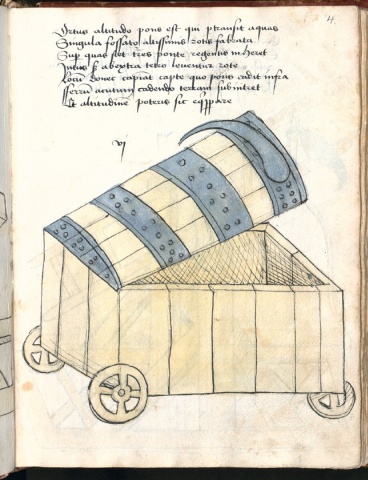 4
Ortus altitudo pons est qui ptransit aquas
Singula fossato altissimis rotis fabrata
Sup quas sut tres ponte regentis inheret
Intus & ab extra tetro leventur rote
Locū donec capiat capte quo pons cadit infra
fferrū acutum cadendo terram subintret
Et altitudinē poteris sic eqppare
vj